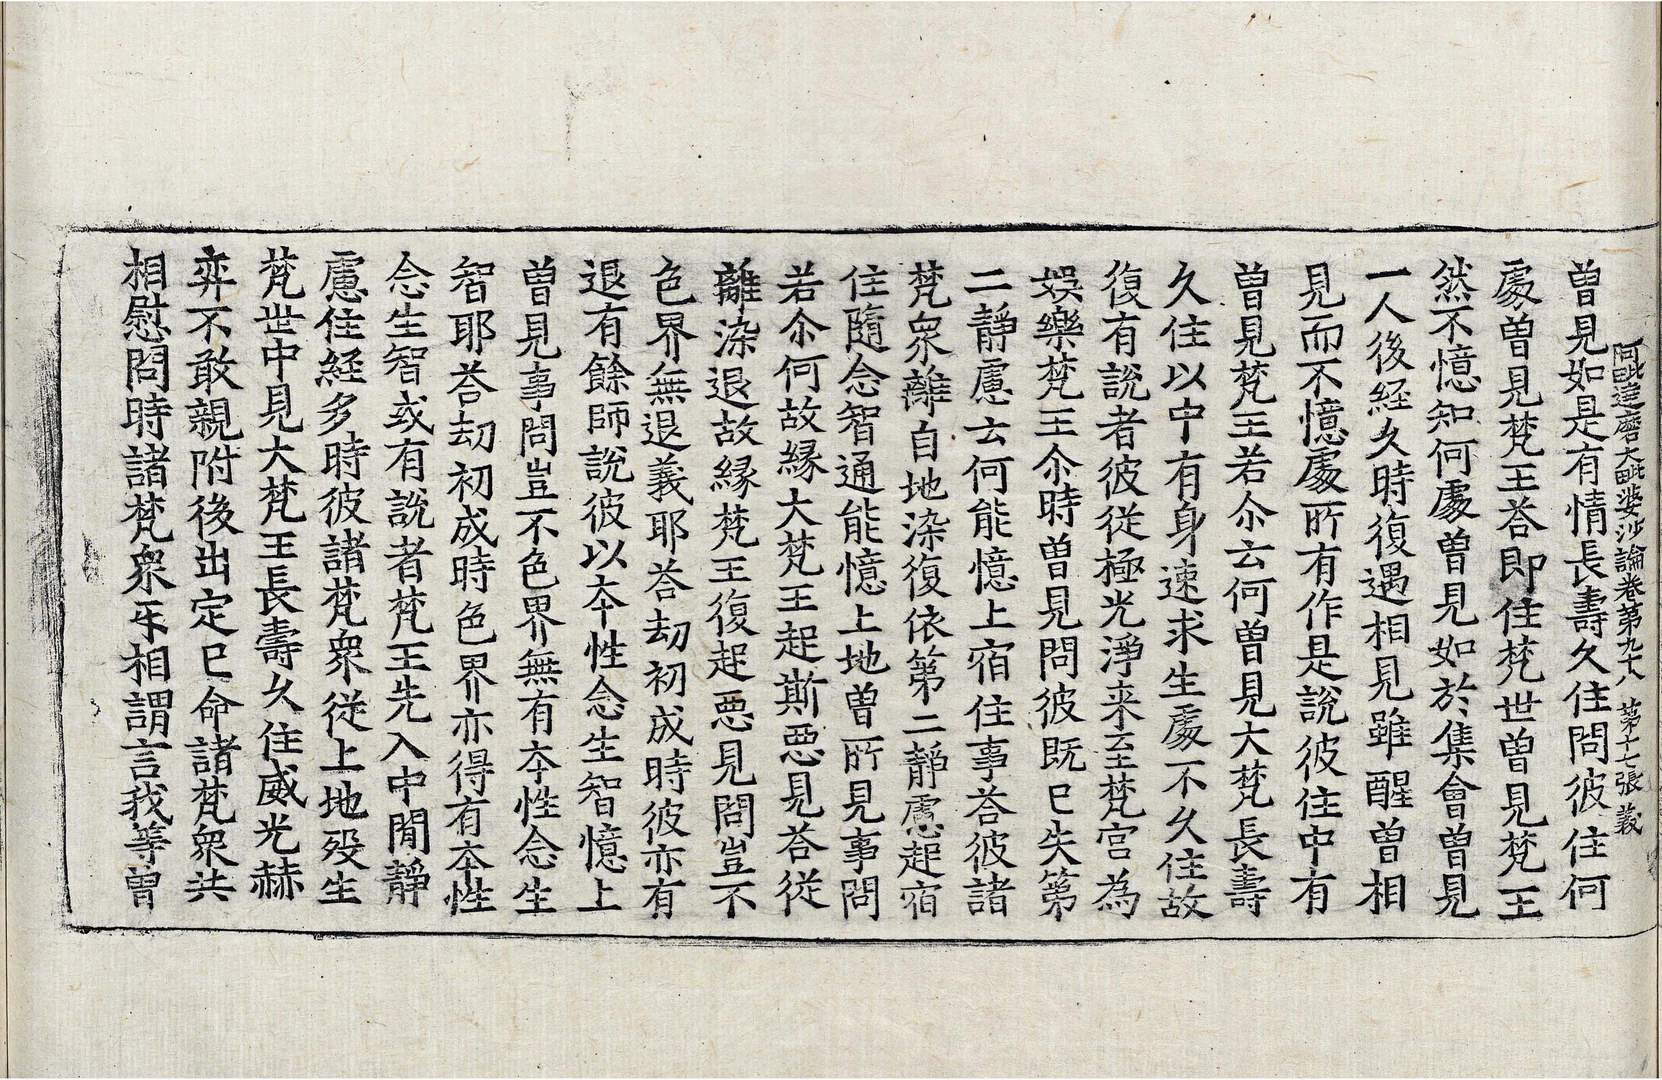 阿毗達磨大毗婆沙論卷第九十八　第十七張　義
曽見如是有情長壽久住問彼住何
處曽見梵王荅即住梵世曽見梵王
然不憶知何處曽見如於集會曽見
一人後經久時復遇相見雖醒曽相
見而不憶處所有作是說彼住中有
曽見梵王若尒云何曽見大梵長壽
久住以中有身速求生處不久住故
復有說者彼從極光淨来至梵宮為
娛樂梵王尒時曽見問彼既已失第
二靜慮云何能憶上宿住事荅彼諸
梵衆離自地染復依第二靜慮起宿
住隨念智通能憶上地曽所見事問
若尒何故緣大梵王起斯惡見荅從
離染退故緣梵王復起惡見問豈不
色界無退義耶荅劫初成時彼亦有
退有餘師說彼以夲性念生智憶上
曽見事問豈不色界無有夲性念生
智耶荅劫初成時色界亦得有夲性
念生智或有說者梵王先入中閒靜
慮住經多時彼諸梵衆從上地歿生
梵世中見大梵王長壽久住威光赫
弈不敢親附後出定已命諸梵衆共
相慰問時諸梵衆㸦相謂言我等曽